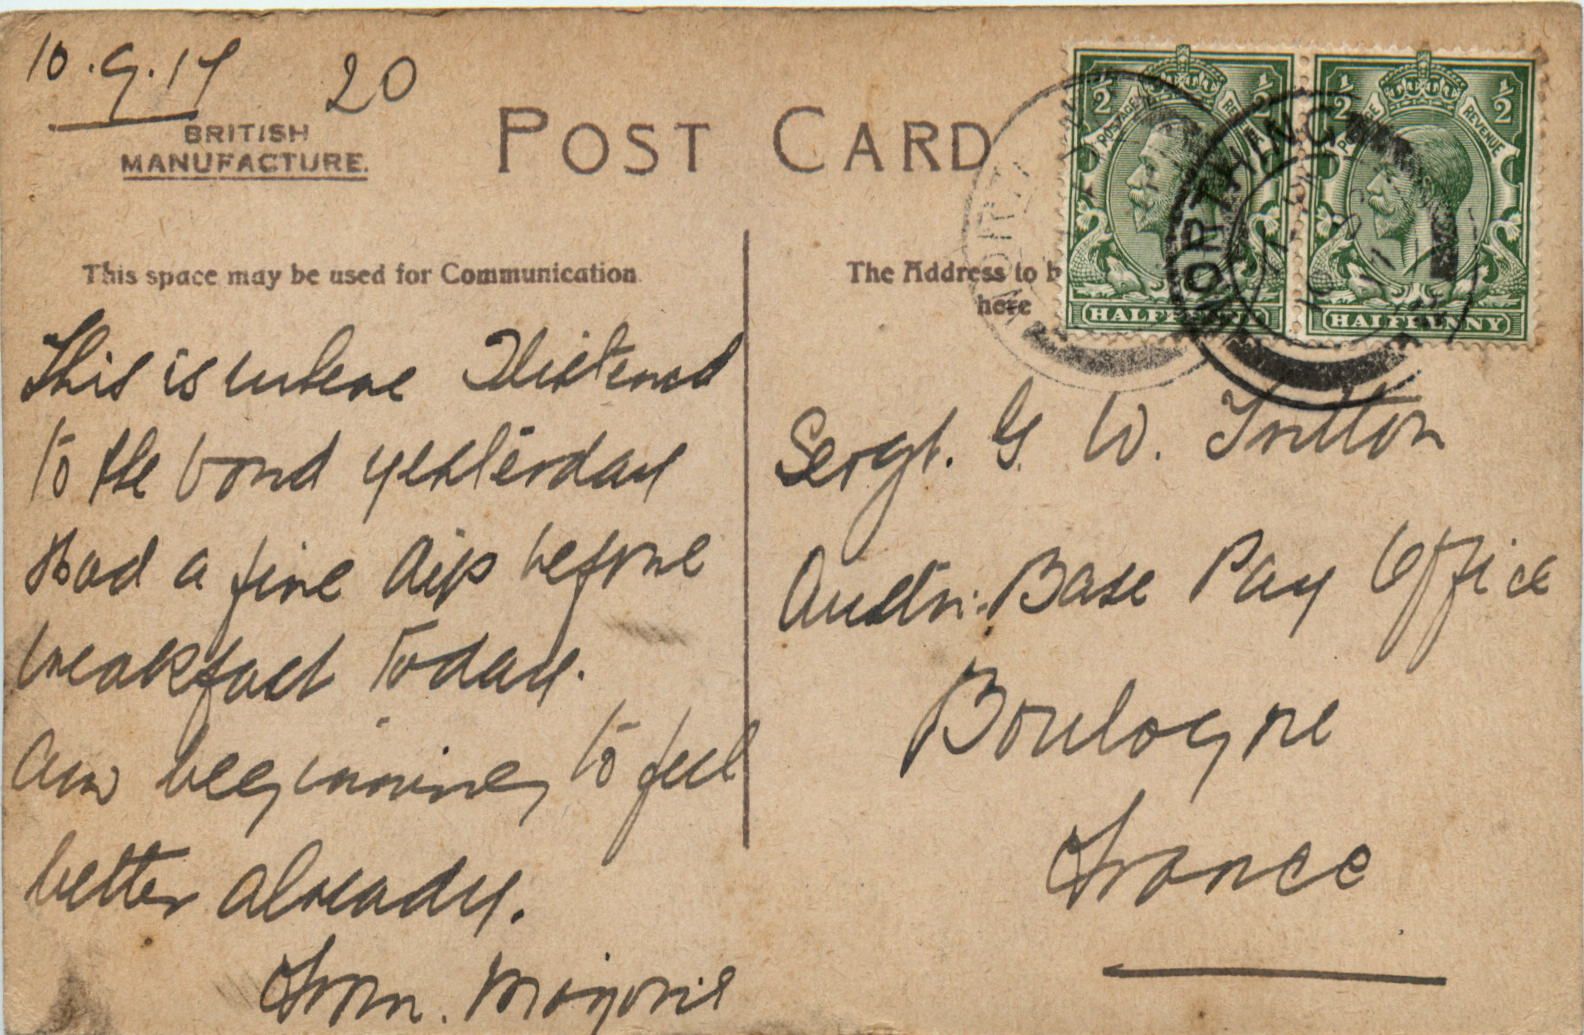 10.9.17 20
BRITISH
MANUFACTURE.
POST CARD
This space may be used for Communication
The Address to b
here
This is where I listened
to the band yesterday
Had a fine dip before
breakfast today.
Am beginning to feel
better already.
From. Marjorie
Sergt. G. W. Tritton
Austn: Base Pay Office
Boulogne
France
1/2 1/2
POSTAGE REVENUE
HALFPENNY
1/2 1/2
REVENUE
HALFPENNY
WORTHING